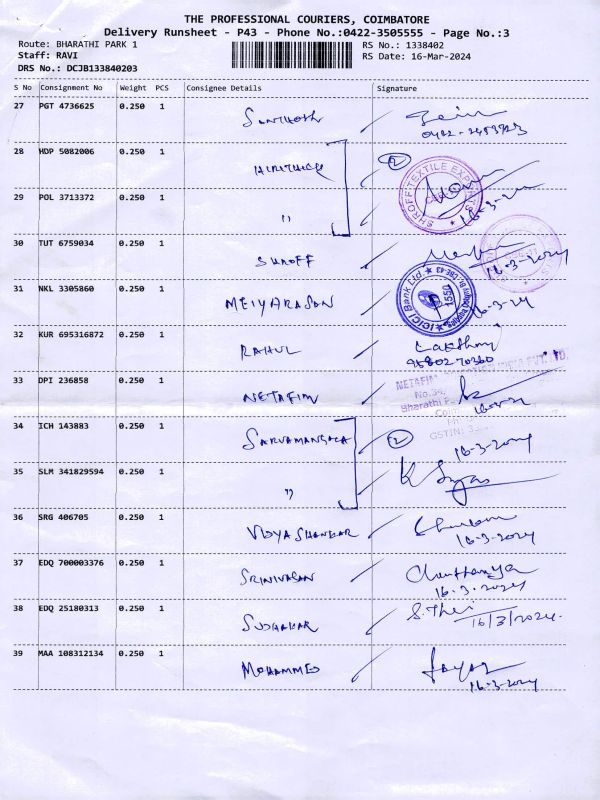 THE PROFESSIONAL COURIERS, COIMBATORE
Delivery Runsheet - P43 - Phone No.:0422-3505555 - Page No.:3
Route: BHARATHI PARK 1 RS No.: 1338402
Staff: RAVI RS Date: 16-Mar-2024
DRS No.: DCJB133840203
S No Consignment No Weight PCS Consignee Details Signature
27 PGT 4736625 0.250 1 SANTHOSH
28 HDP 5082006 0.250 1 2
SHROFF TEXTILE EXPORTS
29 POL 3713372 0.250 1 "
30 TUT 6759034 0.250 1 SHROFF
16-3-2024
31 NKL 3305860 0.250 1 MEIYARASAN
ICICI Bank Ltd.
16-3-24
32 KUR 695316872 0.250 1 RAHUL Lakshmy
9580270360
33 DPI 236858 0.250 1 NETAFIM
34 ICH 143883 0.250 1 SARVAMANGALA 2
GSTIN: 3
16-3-2024
35 SLM 341829594 0.250 1 "
36 SRG 406705 0.250 1 VIDYA SHANKAR
16-3-2024
37 EDQ 700003376 0.250 1 SRINIVASAN Chaithanya
16-3-2024
38 EDQ 25180313 0.250 1 SUDHAKAR
16/3/2024
39 MAA 108312134 0.250 1 MOHAMMED
16-3-2024